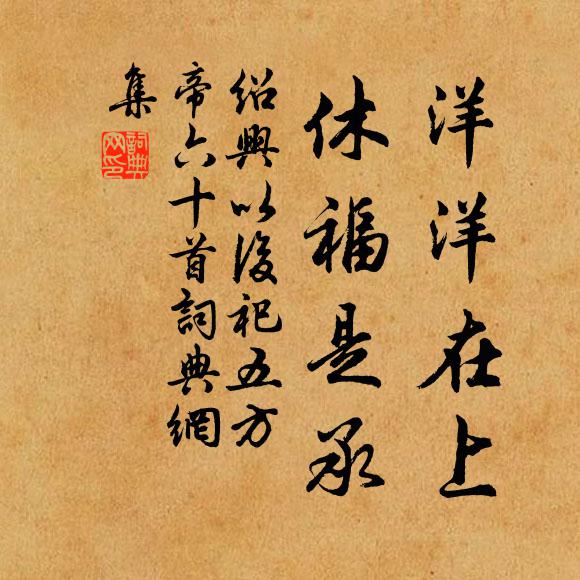 洋洋在上
休福是承
绍興以後祀五方
帝六十首詞典網
集
詞典网印